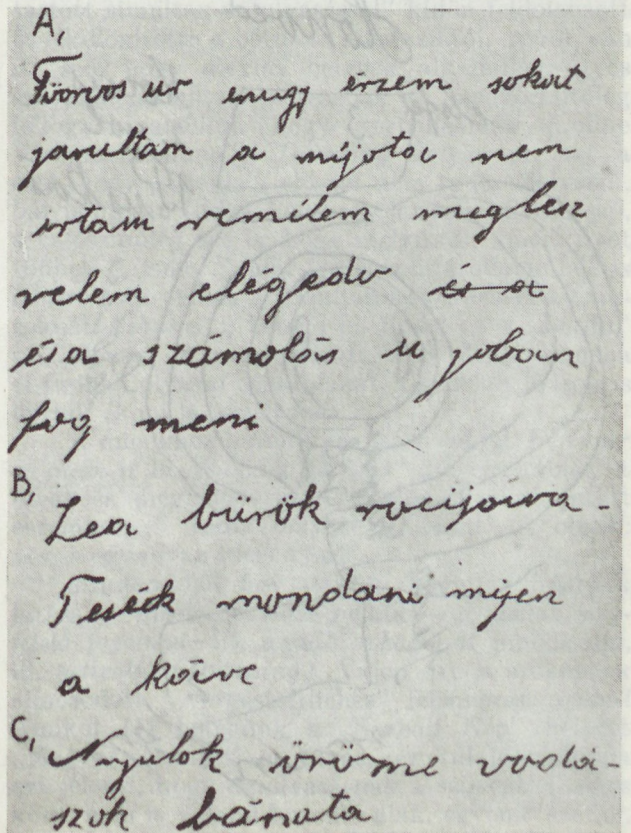 A,
Főorvos ur enugy érzem sokat
javultam a mijota nem
irtam remélem meglesz
velem elégedv és a
ésa számolás u joban
fog meni
B,
Lea bürök rocijoiva-
Tesék mondani mijen
a káve
C,
Nyulok öröme vodá-
szok bánata